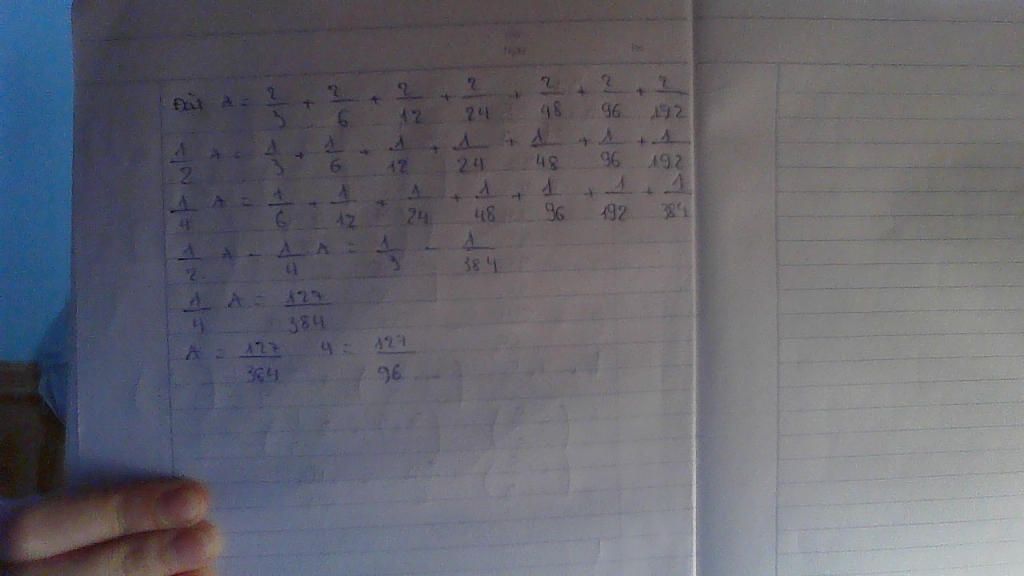 Đặt A = 2/3 + 2/6 + 2/12 + 2/24 + 2/48 + 2/96 + 2/192
1/2 A = 1/3 + 1/6 + 1/12 + 1/24 + 1/48 + 1/96 + 1/192
1/4 A = 1/6 + 1/12 + 1/24 + 1/48 + 1/96 + 1/192 + 1/384
1/2 A - 1/4 A = 1/3 - 1/384
1/4 A = 127/384
A = 127/384 4 = 127/96